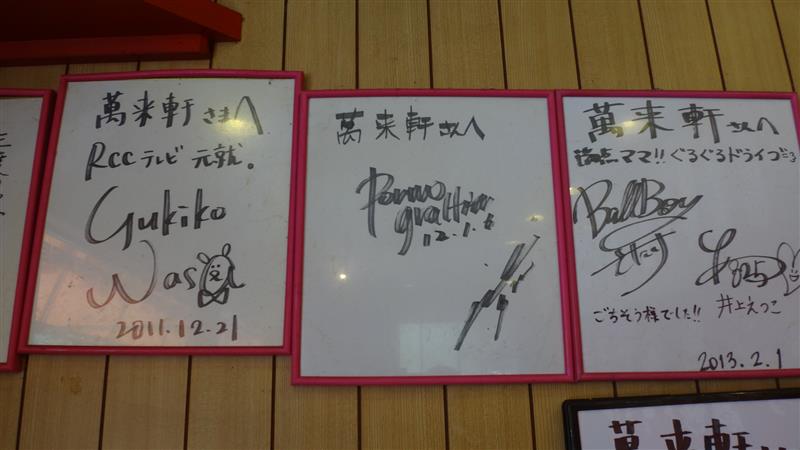 萬来軒さまへ
RCCテレビ 元就。
Yukiko
2011.12.21
萬来軒さんへ
Porno
graffitti
12.1.6
萬来軒さんへ
ママ!! ぐるぐるドライブ
BallBoy
ごちそう様でした!!
井上えつこ
2013.2.1
萬来軒